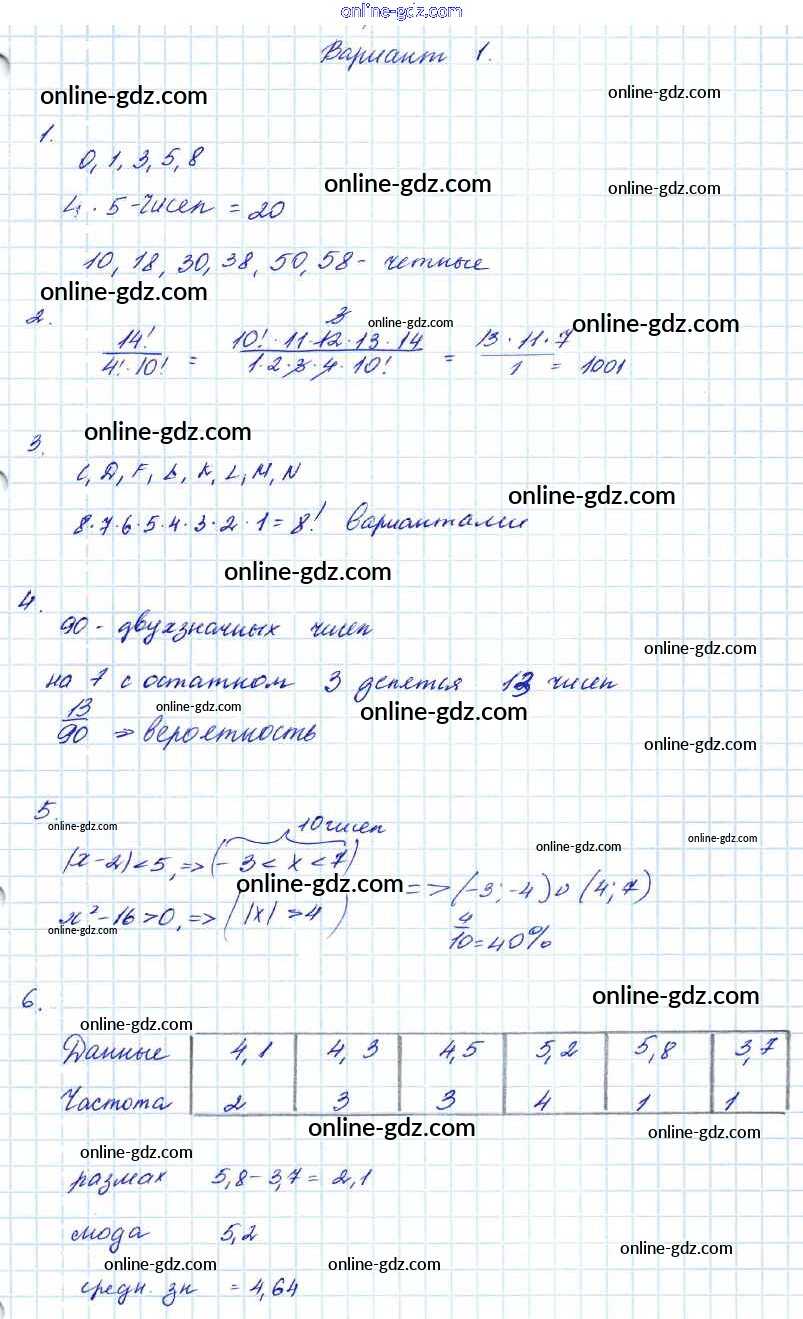 online-gdz.com
Вариант 1.
online-gdz.com
online-gdz.com
1.
0, 1, 3, 5, 8
online-gdz.com
online-gdz.com
4 · 5 - чисел = 20
10, 18, 30, 38, 50, 58 - четные
online-gdz.com
2.
3
online-gdz.com
online-gdz.com
14! / 4! · 10! = 10! · 11 · 12 · 13 · 14 / 1 · 2 · 3 · 4 · 10! = 13 · 11 · 7 / 1 = 1001
3.
online-gdz.com
C, D, F, K, L, M, N
online-gdz.com
8·7·6·5·4·3·2·1 = 8! вариантами
online-gdz.com
4.
90 - двухзначных чисел
online-gdz.com
на 7 с остатком 3 делятся 13 чисел
online-gdz.com
online-gdz.com
13/90 => вероятность
online-gdz.com
5.
online-gdz.com
10 чисел
online-gdz.com
online-gdz.com
|x-2|<5, => (-3 < x < 7)
online-gdz.com
=> (-3; -4) ∪ (4; 7)
x² - 16 > 0, => (|x| > 4)
online-gdz.com
4/10 = 40%
6.
online-gdz.com
online-gdz.com
Данные 4,1 4,3 4,5 5,2 5,8 3,7
Частота 2 3 3 4 1 1
online-gdz.com
online-gdz.com
online-gdz.com
размах 5,8 - 3,7 = 2,1
мода 5,2
online-gdz.com
online-gdz.com
online-gdz.com
средн. зн = 4,64